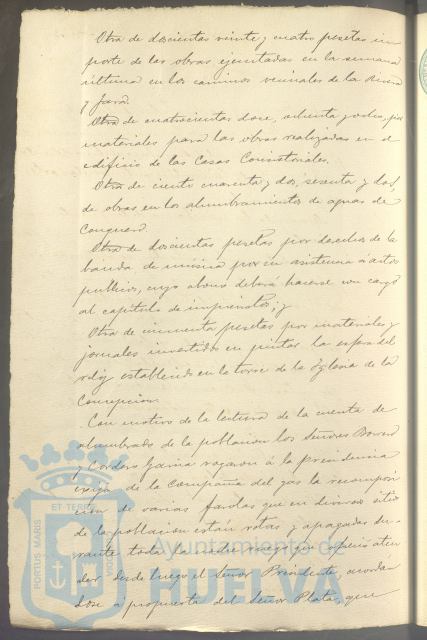 Otra de doscientas veinte y cuatro pesetas im
porte de las obras ejecutadas en la semana
última en los caminos vecinales de la Rivera
y Jara.
Otra de cuatrocientas doce, ochenta y ocho, por
materiales para las obras realizadas en el
edificio de las Casas Consistoriales.
Otra de ciento cuarenta y dos, sesenta y dos,
de obras en los alumbramientos de aguas de
Conquero.
Otra de doscientas pesetas por derechos de la
banda de música por su asistencia á actos
publicos, cuyo abono deberá hacerse con cargo
al capitulo de imprevistos; y
Otra de cincuenta pesetas por materiales y
jornales invertidos en pintar la esfera del
reloj establecido en la torre de la Iglesia de la
Concepcion.
Con motivo de la lectura de la cuenta de
alumbrado de la poblacion los Señores
y Cordero Garcia rogaron á la presidencia
exija de la Compañia del gas la recomposi
cion de varias farolas que en diversos sitios
de la poblacion están rotas y apagadas du-
rante toda la noche ruego que ofreció aten
der desde luego el Señor Presidente, acordan
dose á propuesta del Señor Plata, que
PORTUS MARIS
ET TERRÆ
CUSTODIA
Ayuntamiento de
HUELVA